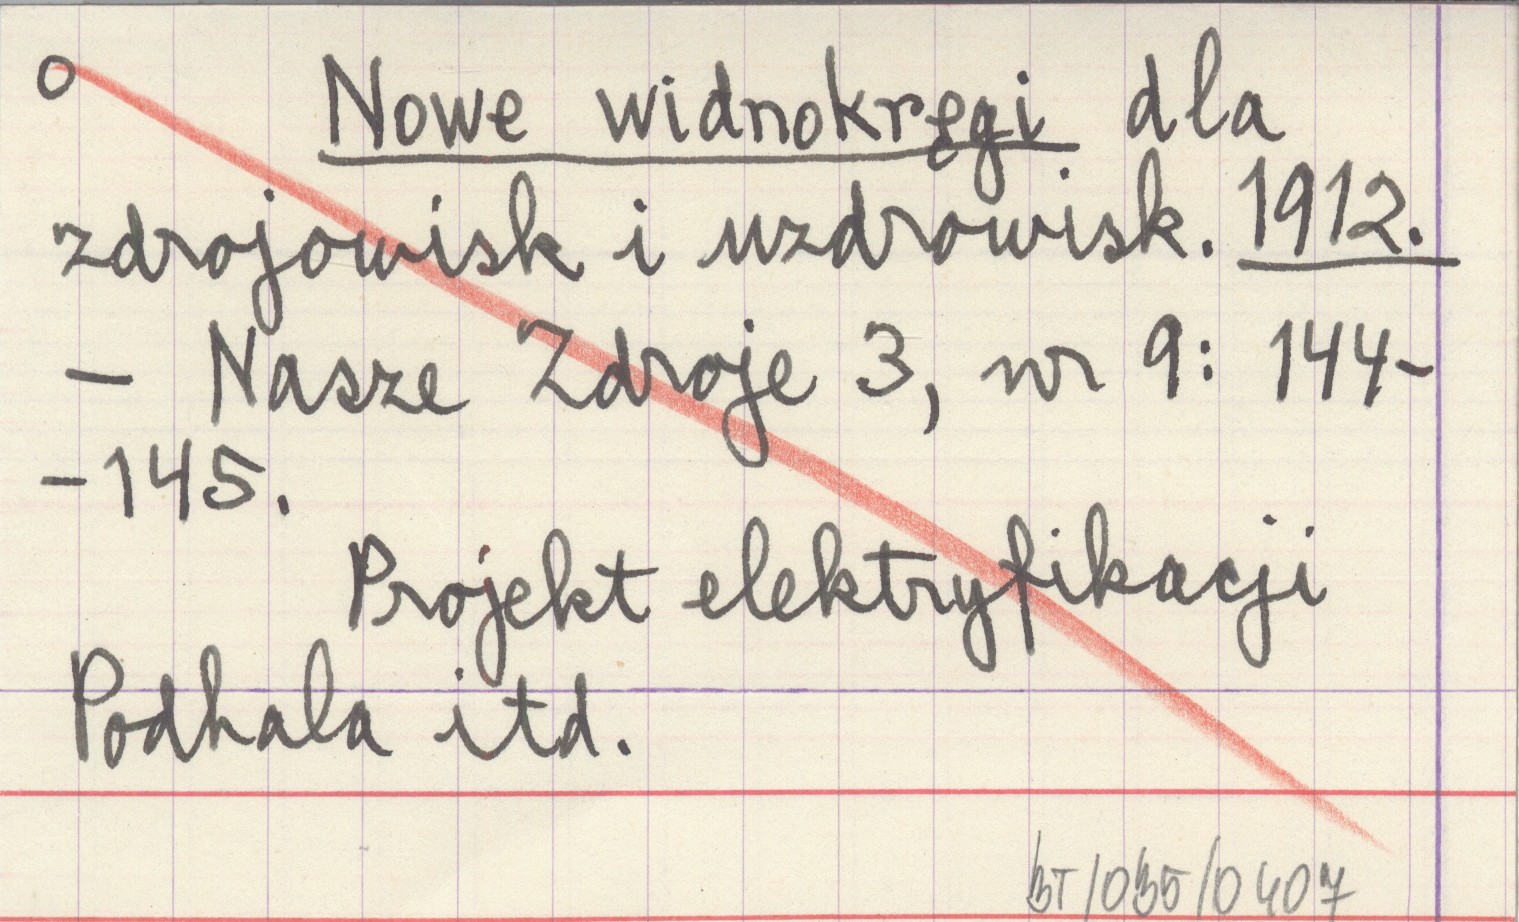 o Nowe widnokręgi dla
zdrojowisk i uzdrowisk. 1912.
— Nasze Zdroje 3, nr 9: 144-
-145.
Projekt elektryfikacji
Podhala itd.
BT/035/0407